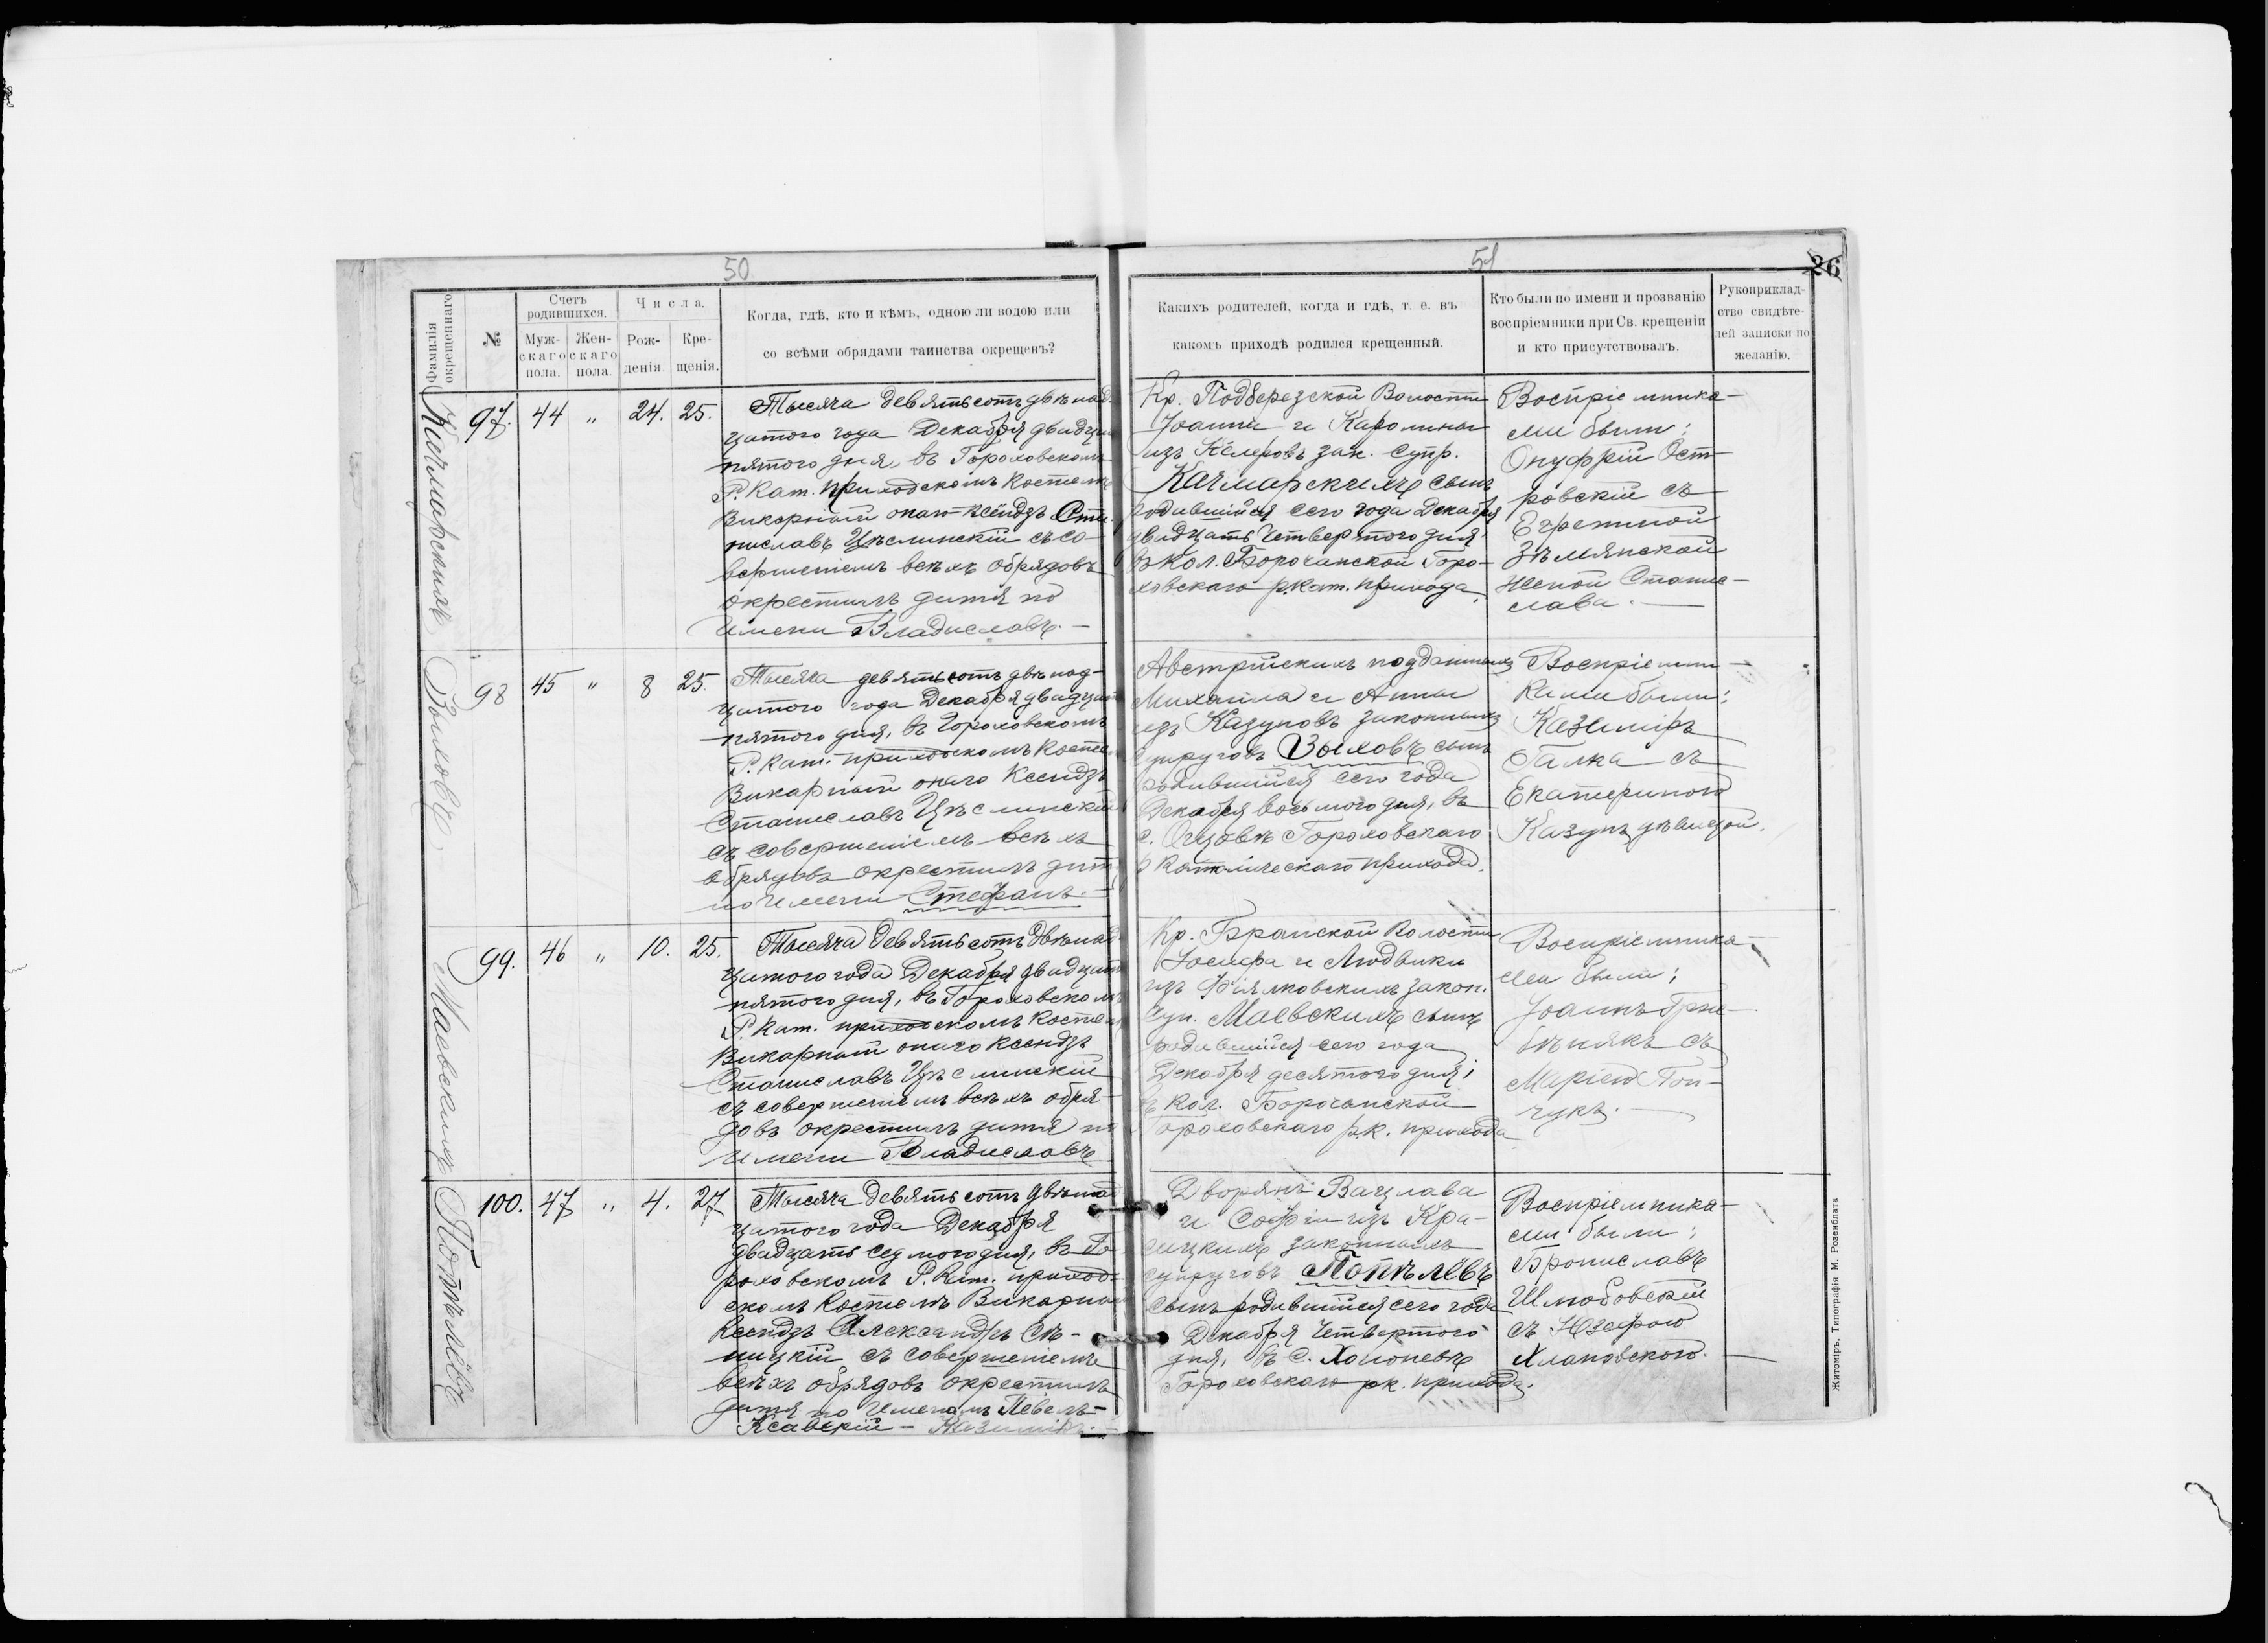 50.
51
26
Фамилія окрещеннаго
№
Счетъ родившихся.
Муж-скаго пола.
Жен-скаго пола.
Числа.
Рож-денія.
Кре-щенія.
Когда, гдѣ, кто и кѣмъ, одною ли водою или
со всѣми обрядами таинства окрещенъ?
Какихъ родителей, когда и гдѣ, т. е. въ
какомъ приходѣ родился крещенный.
Кто были по имени и прозванію
воспріемники при Св. крещеніи
и кто присутствовалъ.
Рукоприклад-
ство свидѣте-
лей записки по
желанію.
Качмарскихъ
97. 44 " 24. 25.
Тысяча девятьсотъ двѣнад-
цатого года Декабря двадцать
пятого дня, въ Гороховскомъ
Р. Кат. приходскомъ костелѣ
Викарный онаго Ксендзъ Ста-
ниславъ Цѣслинскій съ со-
вершеніемъ всѣхъ обрядовъ
окрестилъ дитя по
имени Владиславъ. —
Кр. Подберезской Волости
Іоанна и Каролины
изъ зак. супр.
Качмарскихъ сынъ
родившійся сего года Декабря
двадцать четвертого дня,
въ кол. Борочинской Горо-
ховскаго р.кат. прихода.
Воспріемника-
ми были:
Онуфрій Ост-
ровскій съ
Земянской
женой Станис-
лава. —
Зыховъ
98 45 " 8 25.
Тысяча девятьсотъ двѣнад-
цатого года Декабря двадцать
пятого дня, въ Гороховскомъ
Р. Кат. приходскомъ костелѣ
Викарный онаго Ксендзъ
Станиславъ Цѣслинскій
съ совершеніемъ всѣхъ
обрядовъ окрестилъ дитя
по имени Стефанъ. —
Австрійскихъ подданныхъ
Михаила и Анны
изъ Казуновъ законныхъ
супруговъ Зыховъ сынъ
родившійся сего года
Декабря восьмого дня, въ
с. Гороховскаго
р католическаго прихода.
Воспріемни-
ками были:
Казиміръ
Галка съ
Екатериною
Казунъ дѣвицой.
Маевскихъ
99. 46 " 10. 25.
Тысяча девятьсотъ двѣнад-
цатого года Декабря двадцать
пятого дня, въ Гороховскомъ
Р. Кат. приходскомъ костелѣ
Викарный онаго Ксендзъ
Станиславъ Цѣслинскій
съ совершеніемъ всѣхъ обря-
довъ окрестилъ дитя по
имени Владиславъ
Кр. Бранской Волости
Іосифа и Людвики
изъ закон.
суп. Маевскихъ сынъ
родившійся сего года
Декабря десятого дня,
въ кол. Борочанской
Гороховскаго р.к. прихода
Воспріемника-
ми были:
Іоаннъ
съ
Маріею Гон-
чукъ. —
Попѣлёвъ
100. 47 " 4. 27
Тысяча девятьсотъ двѣнад-
цатого года Декабря
двадцать седьмого дня, въ Го-
роховскомъ Р. Кат. приход-
скомъ костелѣ Викарный
Ксендзъ Александръ Сѣ-
ницкій съ совершеніемъ
всѣхъ обрядовъ окрестилъ
дитя по именамъ Павелъ-
Ксаверій - Казиміръ. —
Дворянъ Вацлава
и Софіи изъ Кра-
сицкихъ законныхъ
супруговъ Попѣлёвъ
сынъ родившійся сего года
Декабря четвертого
дня, въ с. Холоневѣ
Гороховскаго рк. прихода.
Воспріемника-
ми были:
Брониславъ
съ Юзефою
Хлаповскою. —
Житоміръ, Типографія М. Розенблата